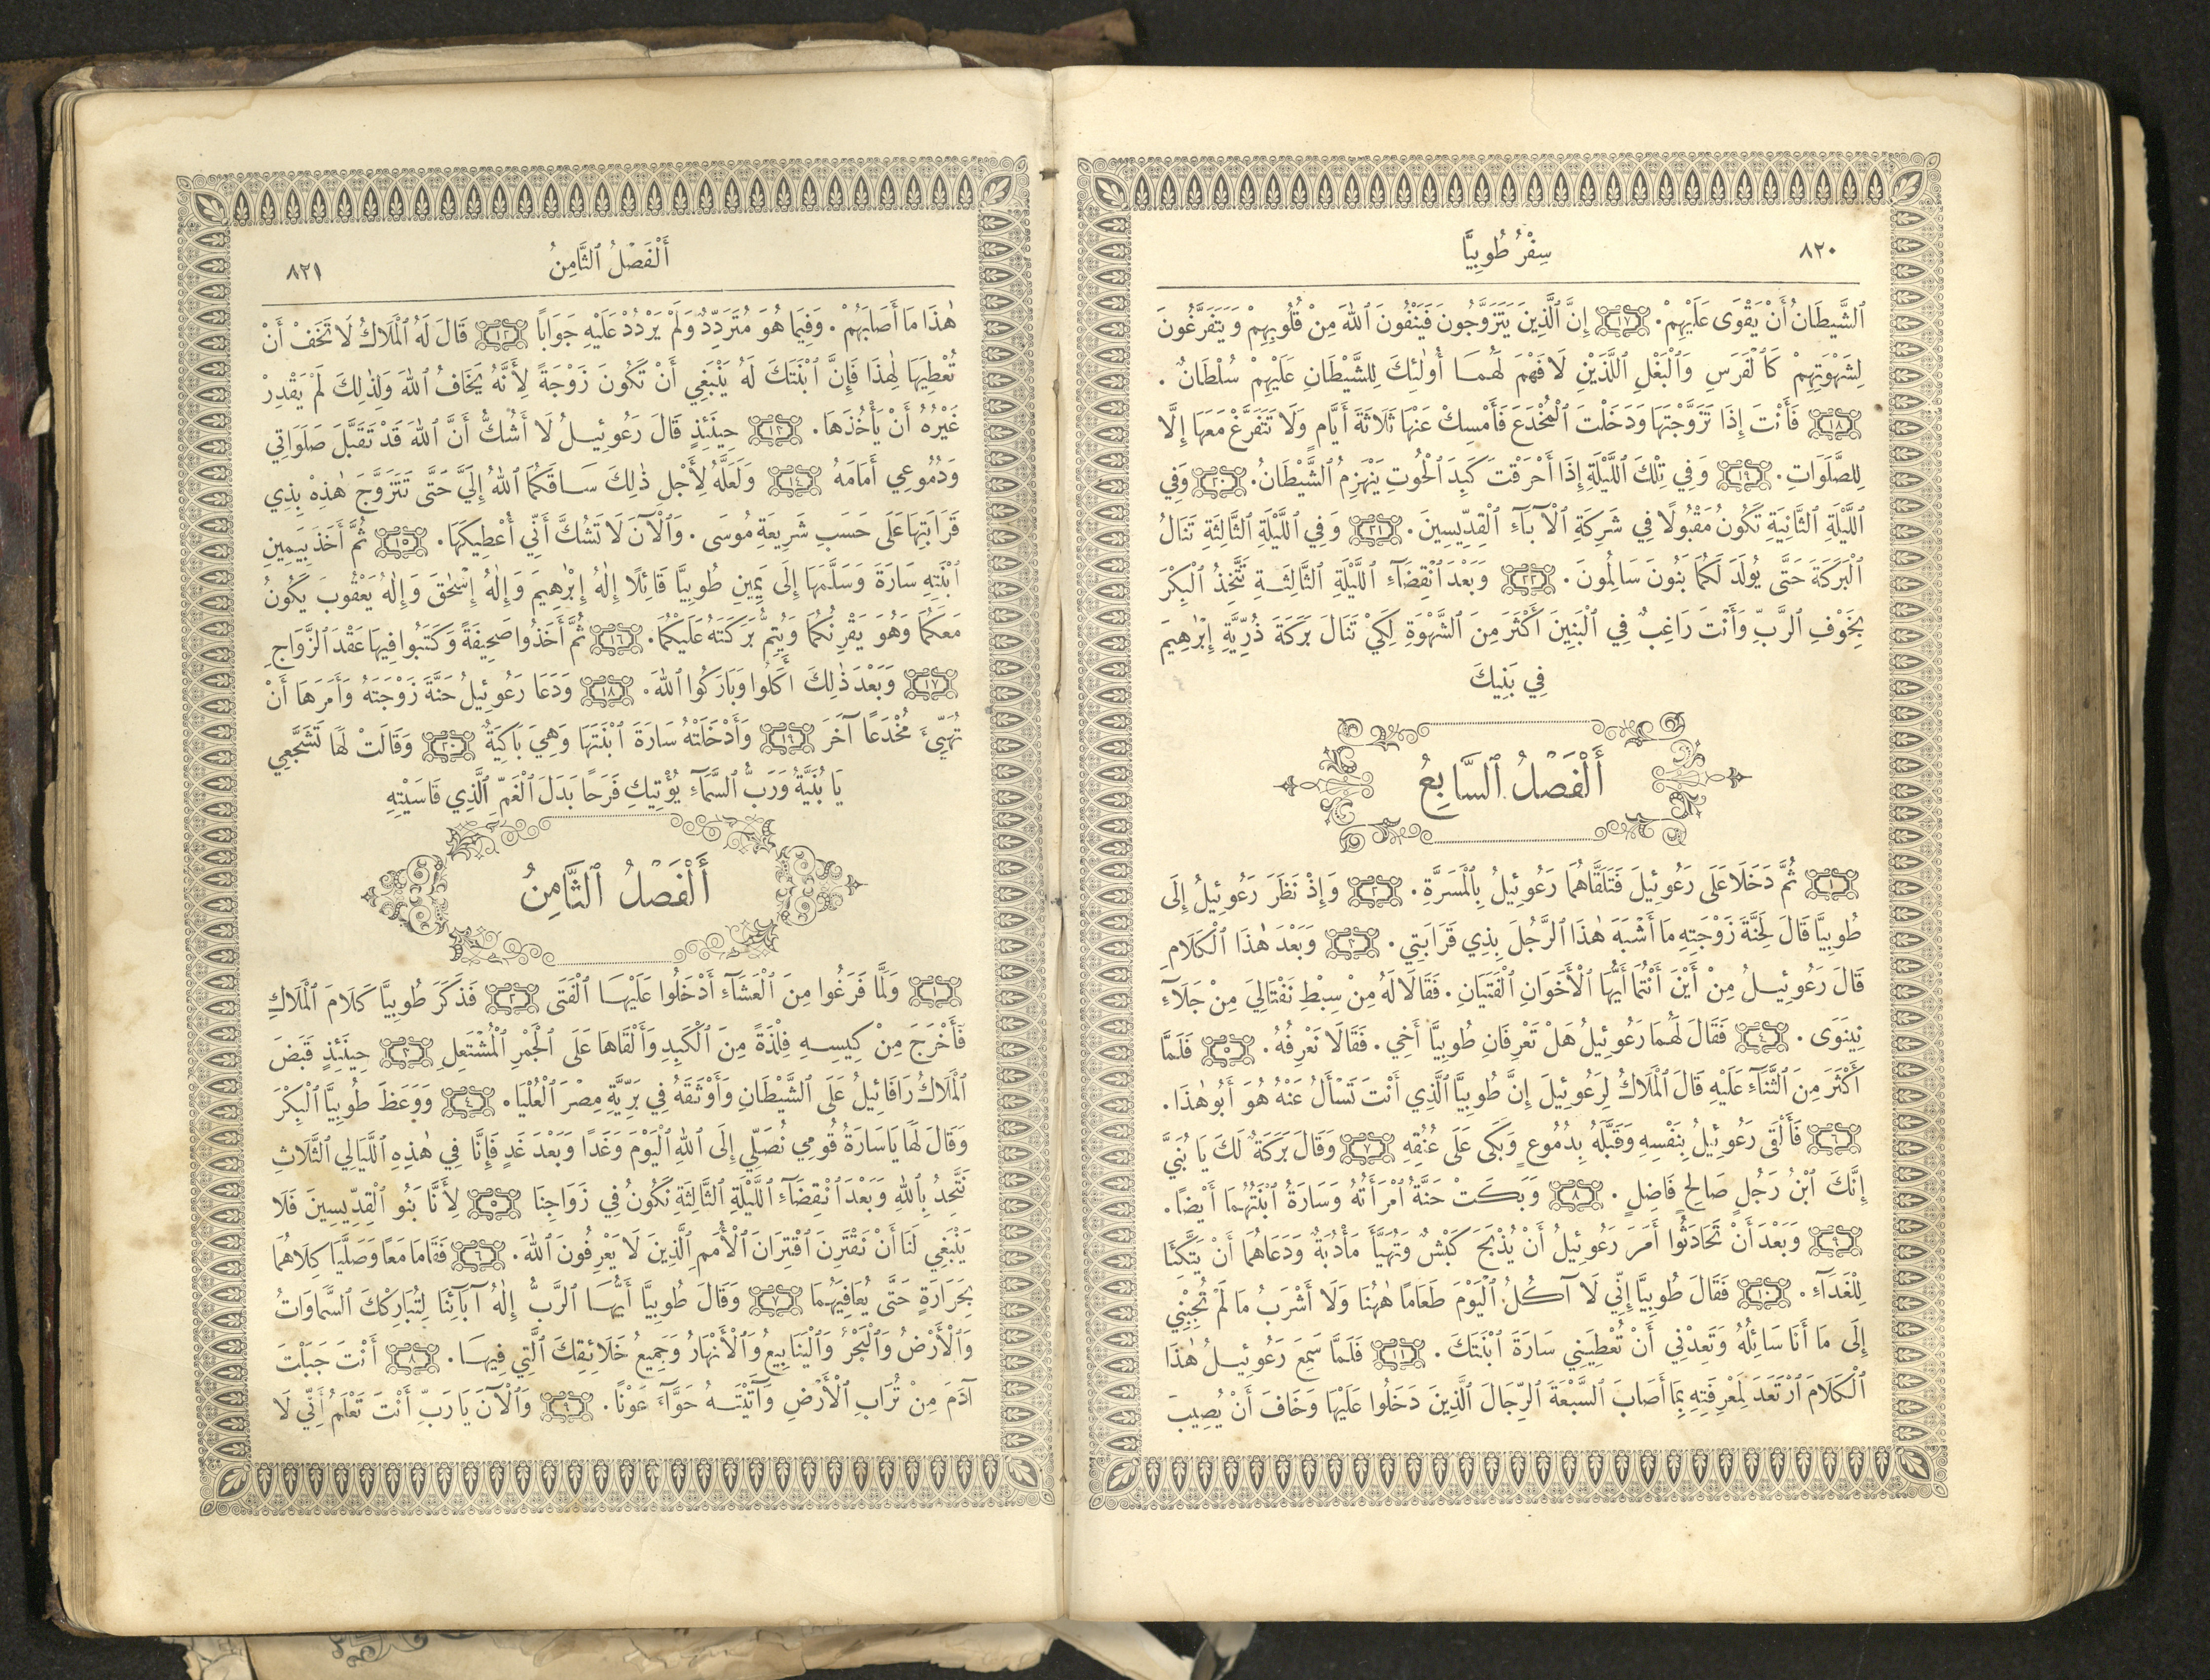 ٨٢٠ سِفْرُ طُوبِيَّا
ٱلشَّيْطَانُ أَنْ يَقْوَى عَلَيْهِمْ. ١٧ إِنَّ ٱلَّذِينَ يَتَزَوَّجُونَ فَيَنْفُونَ ٱللهَ مِنْ قُلُوبِهِمْ وَيَتَفَرَّغُونَ
لِشَهْوَتِهِمْ كَٱلْفَرَسِ وَٱلْبَغْلِ ٱللَّذَيْنِ لَا فَهْمَ لَهُمَا أُولٰئِكَ لِلشَّيْطَانِ عَلَيْهِمْ سُلْطَانٌ.
١٨ فَأَنْتَ إِذَا تَزَوَّجْتَهَا وَدَخَلْتَ ٱلْمُخْدَعَ فَأَمْسِكْ عَنْهَا ثَلَاثَةَ أَيَّامٍ وَلَا تَتَفَرَّغْ مَعَهَا إِلَّا
لِلصَّلَوَاتِ. ١٩ وَفِي تِلْكَ ٱللَّيْلَةِ إِذَا أَحْرَقْتَ كَبِدَ ٱلْحُوتِ يَنْهَزِمُ ٱلشَّيْطَانُ. ٢٠ وَفِي
ٱللَّيْلَةِ ٱلثَّانِيَةِ تَكُونُ مَقْبُولًا فِي شَرِكَةِ ٱلْآبَآءِ ٱلْقِدِّيسِينَ. ٢١ وَفِي ٱللَّيْلَةِ ٱلثَّالِثَةِ تَنَالُ
ٱلْبَرَكَةَ حَتَّى يُولَدَ لَكُمَا بَنُونَ سَالِمُونَ. ٢٢ وَبَعْدَ ٱنْقِضَآءِ ٱللَّيْلَةِ ٱلثَّالِثَةِ تَتَّخِذُ ٱلْبِكْرَ
بِخَوْفِ ٱلرَّبِّ وَأَنْتَ رَاغِبٌ فِي ٱلْبَنِينَ أَكْثَرَ مِنَ ٱلشَّهْوَةِ لِكَيْ تَنَالَ بَرَكَةَ ذُرِّيَّةِ إِبْرٰهِيمَ
فِي بَنِيكَ
أَلْفَصْلُ ٱلسَّابِعُ
١ ثُمَّ دَخَلَا عَلَى رَعُوئِيلَ فَتَلَقَّاهُمَا رَعُوئِيلُ بِٱلْمَسَرَّةِ. ٢ وَإِذْ نَظَرَ رَعُوئِيلُ إِلَى
طُوبِيَّا قَالَ لِحَنَّةَ زَوْجَتِهِ مَا أَشْبَهَ هٰذَا ٱلرَّجُلَ بِذِي قَرَابَتِي. ٣ وَبَعْدَ هٰذَا ٱلْكَلَامِ
قَالَ رَعُوئِيلُ مِنْ أَيْنَ أَنْتُمَا أَيُّهَا ٱلْأَخَوَانِ ٱلْفَتَيَانِ. فَقَالَا لَهُ مِنْ سِبْطِ نَفْتَالِيَ مِنْ جَلَآءِ
نِينَوَى. ٤ فَقَالَ لَهُمَا رَعُوئِيلُ هَلْ تَعْرِفَانِ طُوبِيَّا أَخِي. فَقَالَا نَعْرِفُهُ. ٥ فَلَمَّا
أَكْثَرَ مِنَ ٱلثَّنَآءِ عَلَيْهِ قَالَ ٱلْمَلَاكُ لِرَعُوئِيلَ إِنَّ طُوبِيَّا ٱلَّذِي أَنْتَ تَسْأَلُ عَنْهُ هُوَ أَبُو هٰذَا.
٦ فَأَلْقَى رَعُوئِيلُ بِنَفْسِهِ وَقَبَّلَهُ بِدُمُوعٍ وَبَكَى عَلَى عُنُقِهِ ٧ وَقَالَ بَرَكَةٌ لَكَ يَا بُنَيَّ
إِنَّكَ ٱبْنُ رَجُلٍ صَالِحٍ فَاضِلٍ. ٨ وَبَكَتْ حَنَّةُ ٱمْرَأَتُهُ وَسَارَةُ ٱبْنَتُهُمَا أَيْضًا.
٩ وَبَعْدَ أَنْ تَحَادَثُوا أَمَرَ رَعُوئِيلُ أَنْ يُذْبَحَ كَبْشٌ وَتُهَيَّأَ مَأْدُبَةٌ وَدَعَاهُمَا أَنْ يَتَّكِئَا
لِلْغَدَآءِ. ١٠ فَقَالَ طُوبِيَّا إِنِّي لَا آكُلُ ٱلْيَوْمَ طَعَامًا هٰهُنَا وَلَا أَشْرَبُ مَا لَمْ تُجِبْنِي
إِلَى مَا أَنَا سَائِلُهُ وَتَعِدْنِي أَنْ تُعْطِيَنِي سَارَةَ ٱبْنَتَكَ. ١١ فَلَمَّا سَمِعَ رَعُوئِيلُ هٰذَا
ٱلْكَلَامَ ٱرْتَعَدَ لِمَعْرِفَتِهِ بِمَا أَصَابَ ٱلسَّبْعَةَ ٱلرِّجَالَ ٱلَّذِينَ دَخَلُوا عَلَيْهَا وَخَافَ أَنْ يُصِيبَ
أَلْفَصْلُ ٱلثَّامِنُ ٨٢١
هٰذَا مَا أَصَابَهُمْ. وَفِيمَا هُوَ مُتَرَدِّدٌ وَلَمْ يَرْدُدْ عَلَيْهِ جَوَابًا ١٢ قَالَ لَهُ ٱلْمَلَاكُ لَا تَخَفْ أَنْ
تُعْطِيَهَا لِهٰذَا فَإِنَّ ٱبْنَتَكَ لَهُ يَنْبَغِي أَنْ تَكُونَ زَوْجَةً لِأَنَّهُ يَخَافُ ٱللهَ وَلِذٰلِكَ لَمْ يَقْدِرْ
غَيْرُهُ أَنْ يَأْخُذَهَا. ١٣ حِينَئِذٍ قَالَ رَعُوئِيلُ لَا أَشُكُّ أَنَّ ٱللهَ قَدْ تَقَبَّلَ صَلَوَاتِي
وَدُمُوعِي أَمَامَهُ ١٤ وَلَعَلَّهُ لِأَجْلِ ذٰلِكَ سَاقَكُمَا ٱللهُ إِلَيَّ حَتَّى تَتَزَوَّجَ هٰذِهْ بِذِي
قَرَابَتِهَا عَلَى حَسَبِ شَرِيعَةِ مُوسَى. وَٱلْآنَ لَا تَشُكَّ أَنِّي أُعْطِيكَهَا. ١٥ ثُمَّ أَخَذَ بِيَمِينِ
ٱبْنَتِهِ سَارَةَ وَسَلَّمَهَا إِلَى يَمِينِ طُوبِيَّا قَائِلًا إِلٰهُ إِبْرٰهِيمَ وَإِلٰهُ إِسْحٰقَ وَإِلٰهُ يَعْقُوبَ يَكُونُ
مَعَكُمَا وَهُوَ يَقْرِنُكُمَا وَيُتِمُّ بَرَكَتَهُ عَلَيْكُمَا. ١٦ ثُمَّ أَخَذُوا صَحِيفَةً وَكَتَبُوا فِيهَا عَقْدَ ٱلزَّوَاجِ
١٧ وَبَعْدَ ذٰلِكَ أَكَلُوا وَبَارَكُوا ٱللهَ. ١٨ وَدَعَا رَعُوئِيلُ حَنَّةَ زَوْجَتَهُ وَأَمَرَهَا أَنْ
تُهَيِّئَ مُخْدَعًا آخَرَ ١٩ وَأَدْخَلَتْهُ سَارَةَ ٱبْنَتَهَا وَهِيَ بَاكِيَةٌ ٢٠ وَقَالَتْ لَهَا تَشَجَّعِي
يَا بُنَيَّةُ وَرَبُّ ٱلسَّمَآءِ يُؤْتِيكِ فَرَحًا بَدَلَ ٱلْغَمِّ ٱلَّذِي قَاسَيْتِهِ
أَلْفَصْلُ ٱلثَّامِنُ
١ وَلَمَّا فَرَغُوا مِنَ ٱلْعَشَآءِ أَدْخَلُوا عَلَيْهَا ٱلْفَتَى ٢ فَذَكَرَ طُوبِيَّا كَلَامَ ٱلْمَلَاكِ
فَأَخْرَجَ مِنْ كِيسِهِ فِلْذَةً مِنَ ٱلْكَبِدِ وَأَلْقَاهَا عَلَى ٱلْجَمْرِ ٱلْمُشْتَعِلِ ٣ حِينَئِذٍ قَبَضَ
ٱلْمَلَاكُ رَافَائِيلُ عَلَى ٱلشَّيْطَانِ وَأَوْثَقَهُ فِي بَرِّيَّةِ مِصْرَ ٱلْعُلْيَا. ٤ وَوَعَظَ طُوبِيَّا ٱلْبِكْرَ
وَقَالَ لَهَا يَا سَارَةُ قُومِي نُصَلِّي إِلَى ٱللهِ ٱلْيَوْمَ وَغَدًا وَبَعْدَ غَدٍ فَإِنَّا فِي هٰذِهِ ٱللَّيَالِي ٱلثَّلَاثِ
نَتَّحِدُ بِٱللهِ وَبَعْدَ ٱنْقِضَآءِ ٱللَّيْلَةِ ٱلثَّالِثَةِ نَكُونُ فِي زَوَاجِنَا ٥ لِأَنَّا بَنُو ٱلْقِدِّيسِينَ فَلَا
يَنْبَغِي لَنَا أَنْ نَقْتَرِنَ ٱقْتِرَانَ ٱلْأُمَمِ ٱلَّذِينَ لَا يَعْرِفُونَ ٱللهَ. ٦ فَقَامَا مَعًا وَصَلَّيَا كِلَاهُمَا
بِحَرَارَةٍ حَتَّى يُعَافِيَهُمَا ٧ وَقَالَ طُوبِيَّا أَيُّهَا ٱلرَّبُّ إِلٰهُ آبَآئِنَا لِتُبَارِكْكَ ٱلسَّمَاوَاتُ
وَٱلْأَرْضُ وَٱلْبَحْرُ وَٱلْيَنَابِيعُ وَٱلْأَنْهَارُ وَجَمِيعُ خَلَائِقِكَ ٱلَّتِي فِيهَا. ٨ أَنْتَ جَبَلْتَ
آدَمَ مِنْ تُرَابِ ٱلْأَرْضِ وَآتَيْتَهُ حَوَّآءَ عَوْنًا. ٩ وَٱلْآنَ يَا رَبِّ أَنْتَ تَعْلَمُ أَنِّي لَا